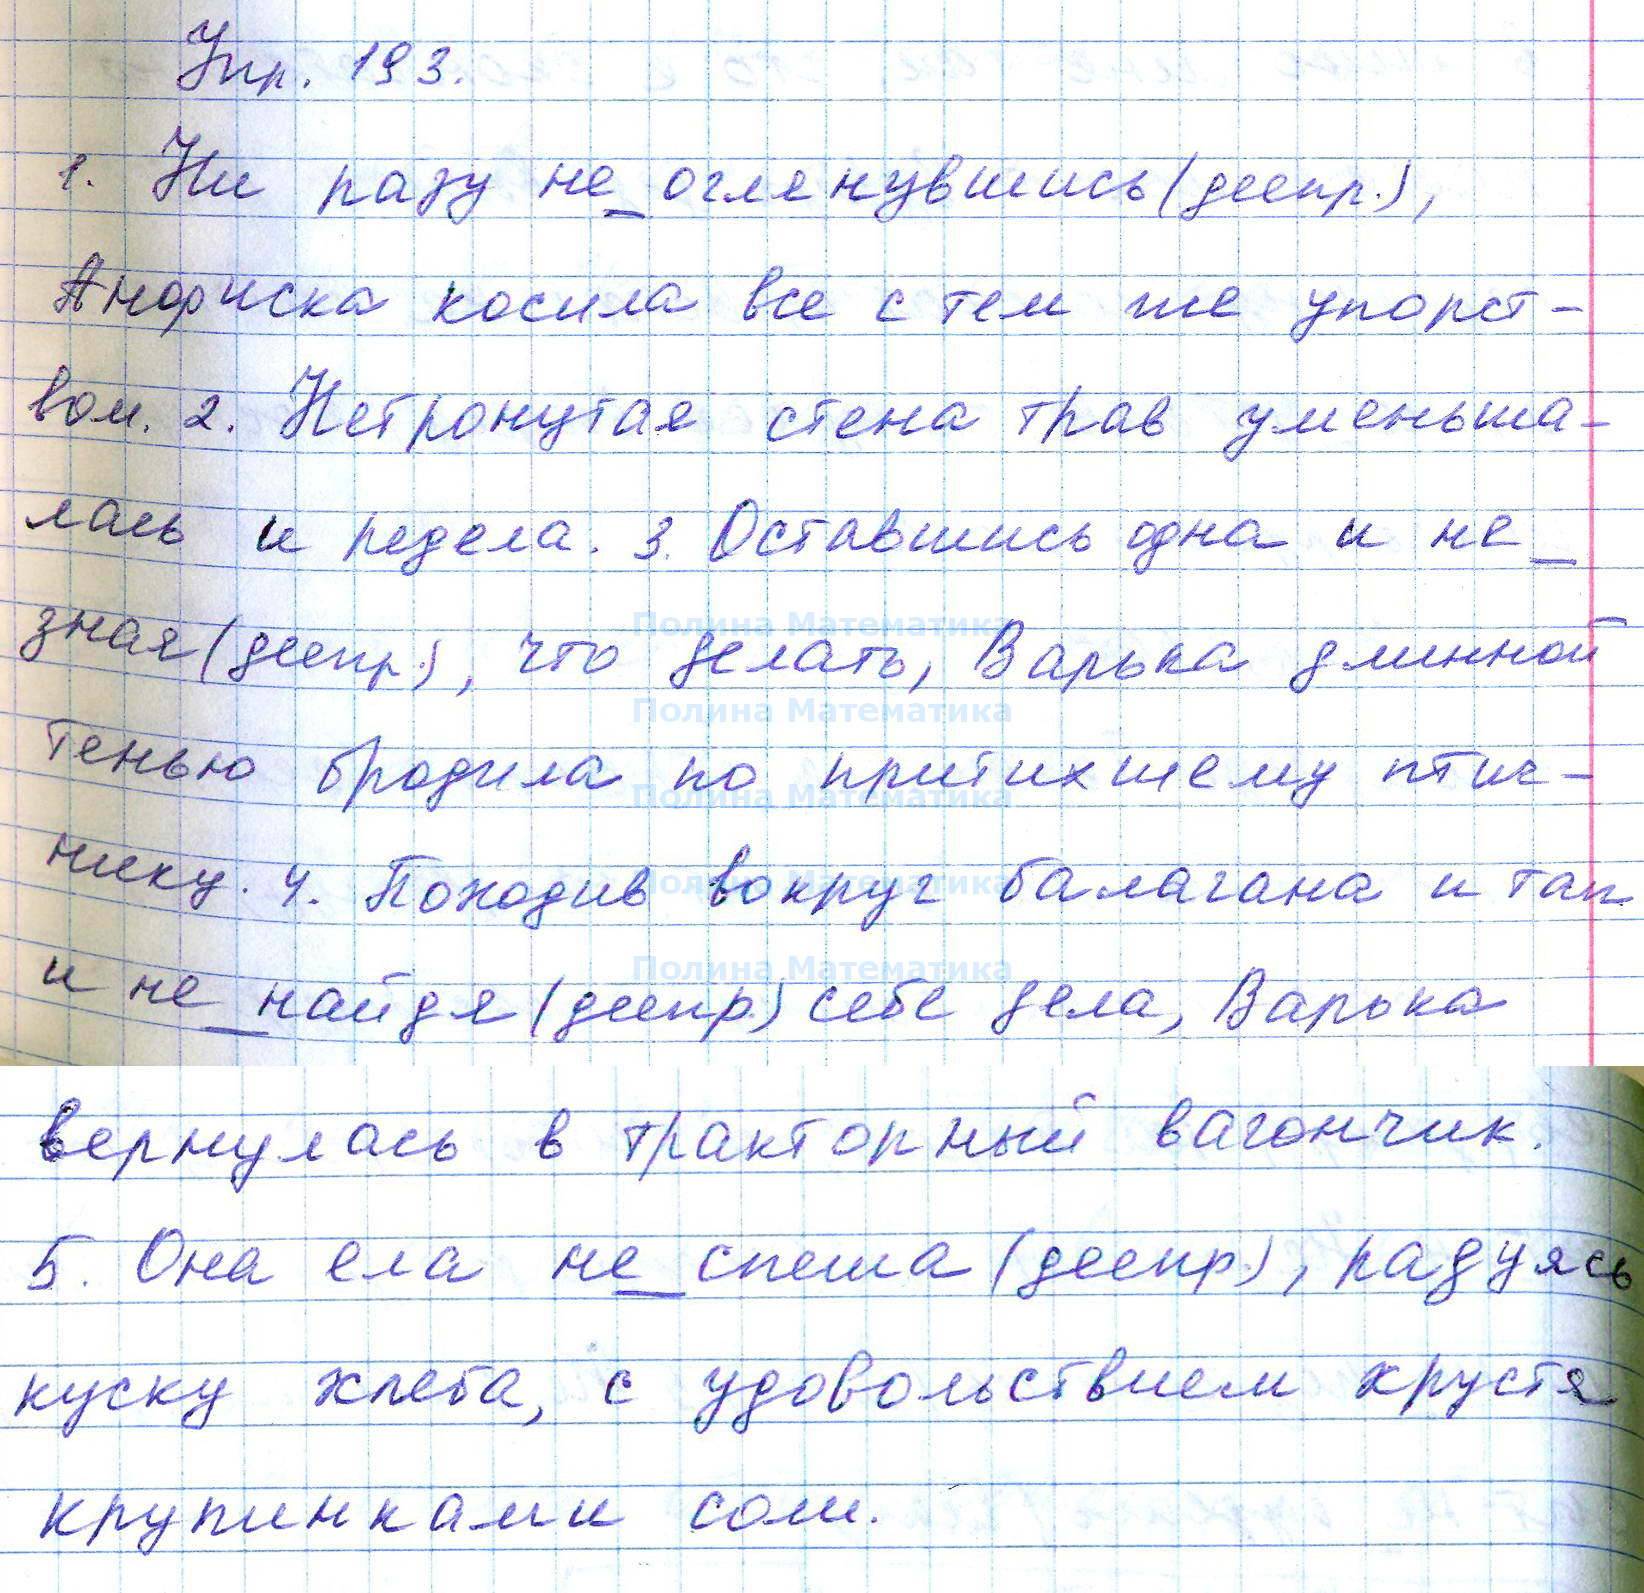 Упр. 193.
1. Ни разу не_оглянувшись (деепр.),
Анфиска косила все с тем же упорст-
вом. 2. Нетронутая стена трав уменьша-
лась и редела. 3. Оставшись одна и не_
зная (деепр.), что делать, Варька длинной
тенью бродила по притихшему птич-
нику. 4. Походив вокруг балагана и так
и не_найдя (деепр.) себе дела, Варька
вернулась в тракторный вагончик.
5. Она ела не_спеша (деепр.), радуясь
куску хлеба, с удовольствием хрустя
крупинками соли.
Полина Математика
Полина Математика
Полина Математика
Полина Математика
Полина Математика